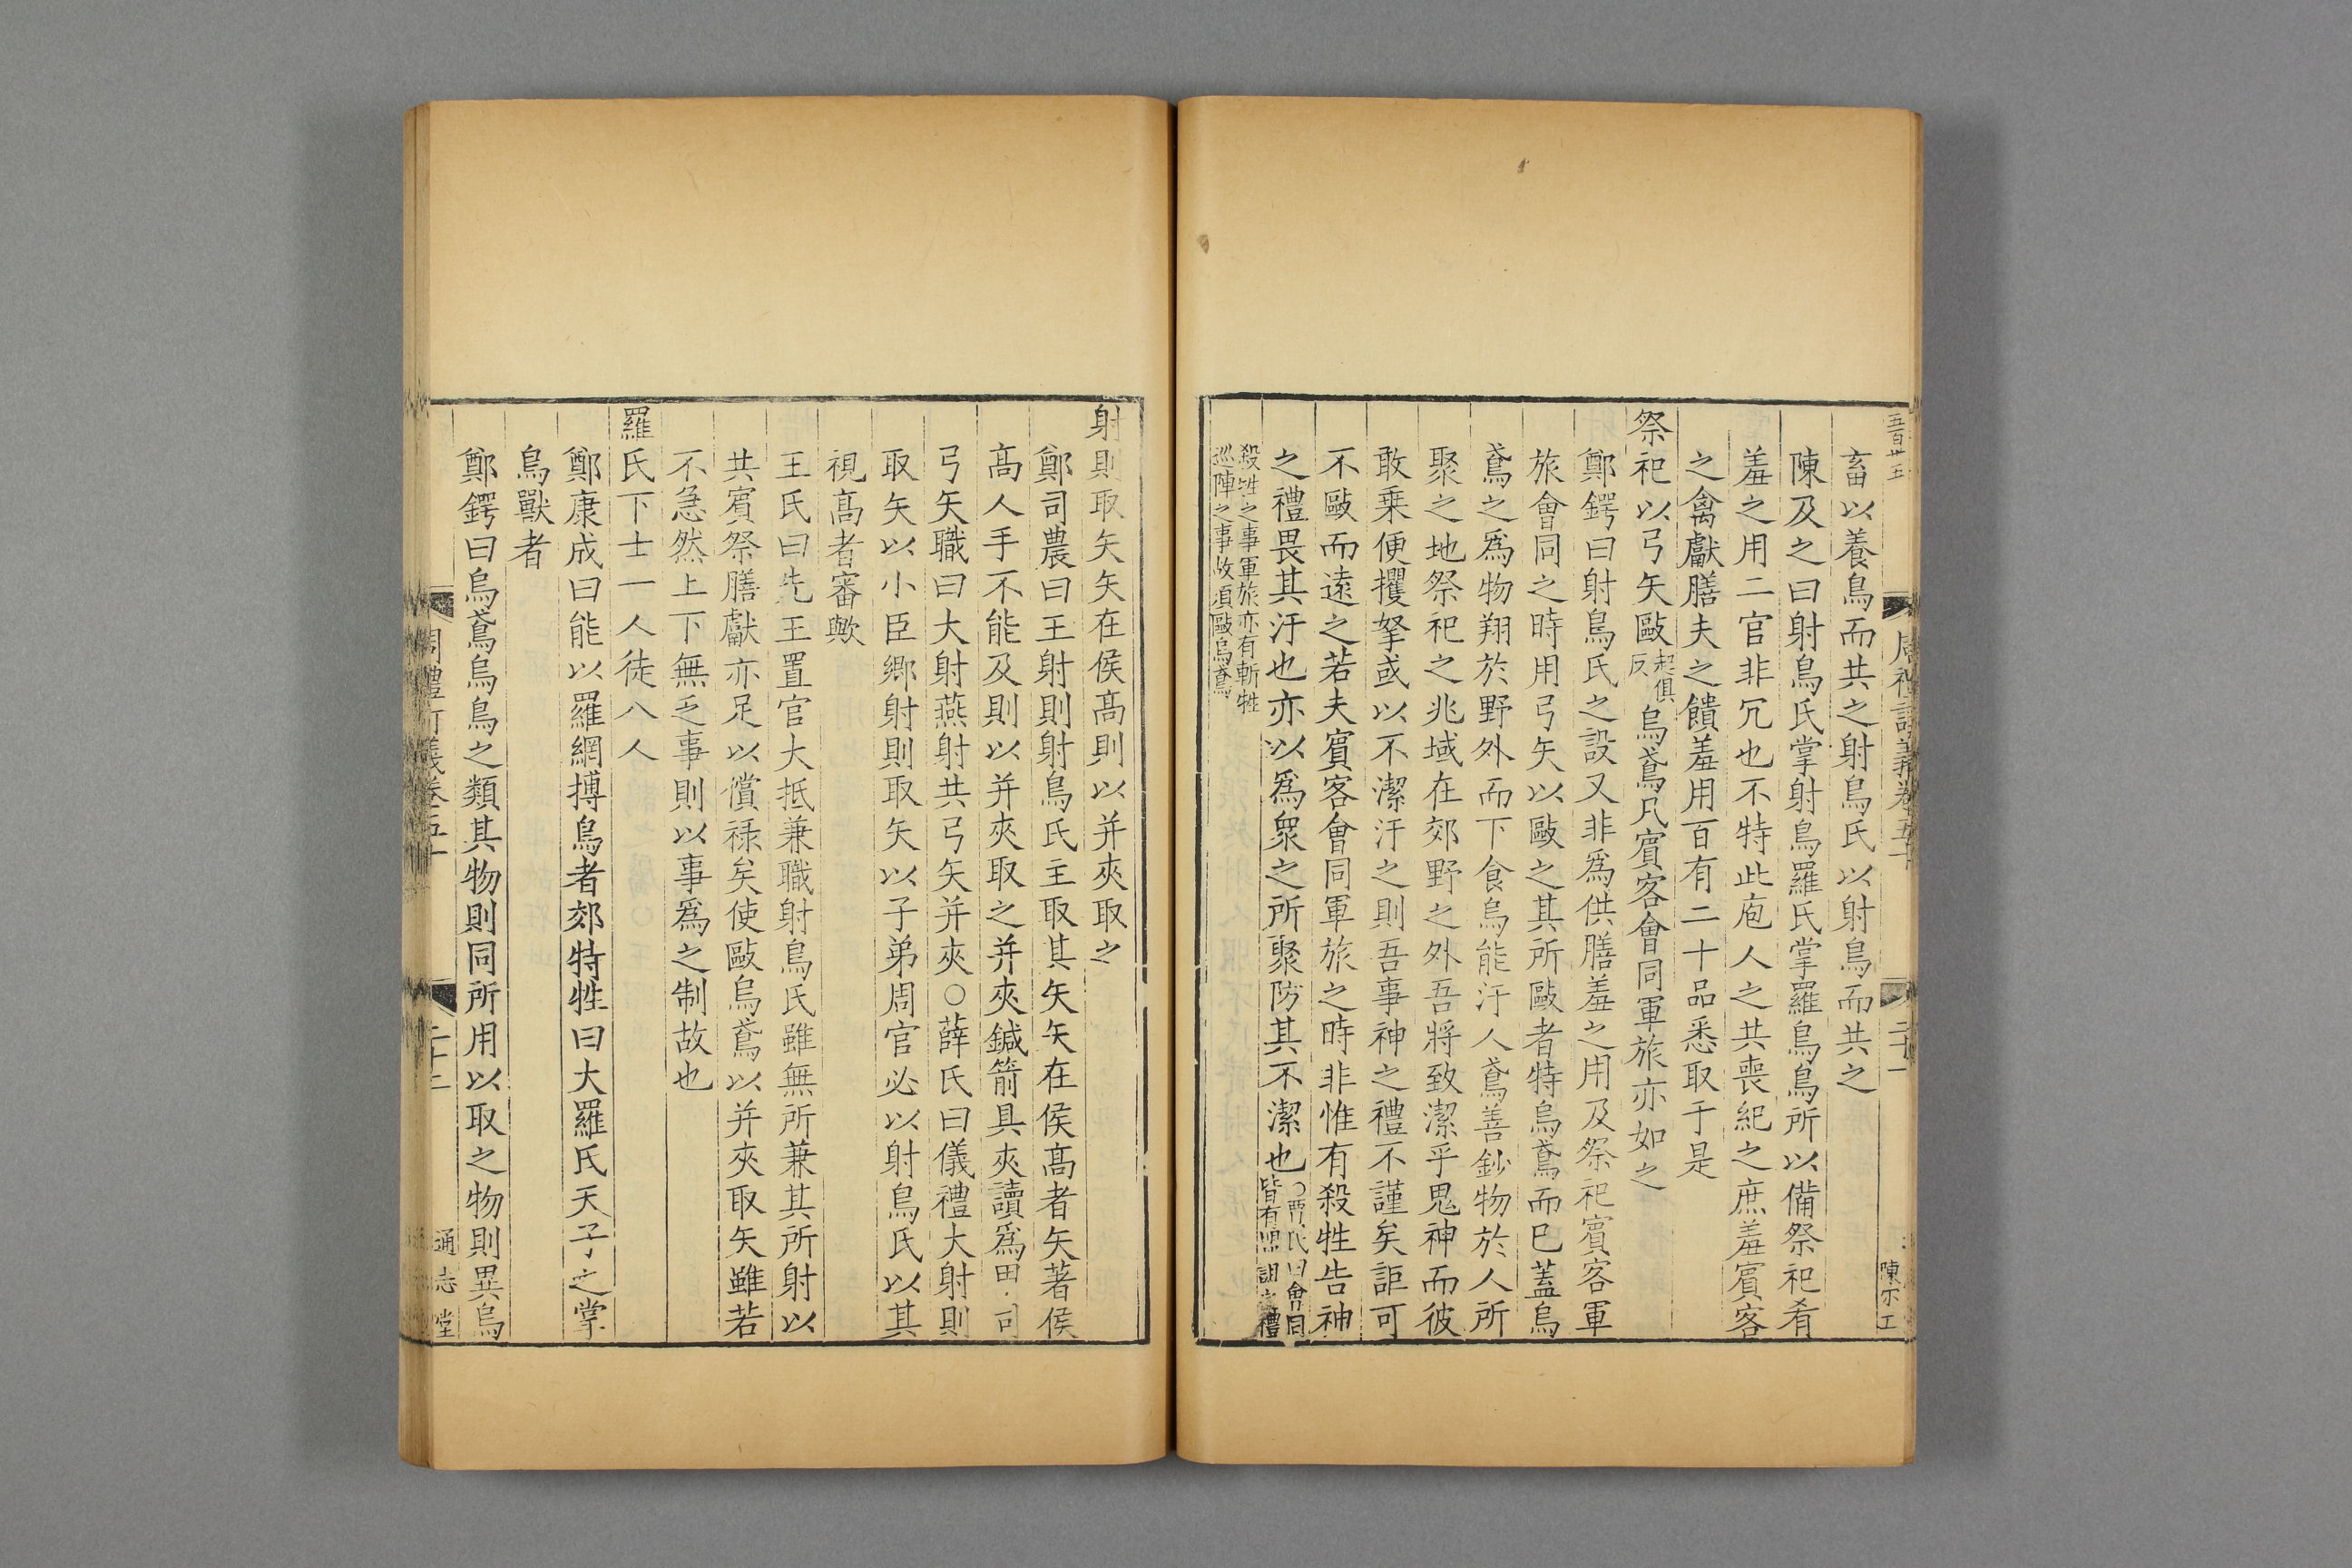 五百卅五
周禮訂義卷五十
二十一
陳尔工
畜以養鳥而共之射鳥氏以射鳥而共之
陳及之曰射鳥氏掌射鳥羅氏掌羅烏鳥所以備祭祀肴
羞之用二官非冗也不特此庖人之共喪紀之庶羞賓客
之禽獻膳夫之饋羞用百有二十品悉取于是
祭祀以弓矢毆起俱反烏鳶凡賓客會同軍旅亦如之
鄭鍔曰射鳥氏之設又非爲供膳羞之用及祭祀賓客軍
旅會同之時用弓矢以毆之其所毆者特烏鳶而巳蓋烏
鳶之爲物翔於野外而下食烏能汙人鳶善鈔物於人所
聚之地祭祀之兆域在郊野之外吾將致潔乎鬼神而彼
敢乗便攫拏或以不潔汙之則吾事神之禮不謹矣詎可
不毆而遠之若夫賓客會同軍旅之時非惟有殺牲告神
之禮畏其汙也亦以爲衆之所聚防其不潔也○賈氏曰會同皆有盟詛之禮
殺牲之事軍旅亦有斬牲
巡陣之事故須毆烏鳶
射則取矢矢在侯髙則以并夾取之
鄭司農曰王射則射鳥氏主取其矢矢在侯髙者矢著侯
髙人手不能及則以并夾取之并夾鍼箭具夾讀爲甲司
弓矢職曰大射燕射共弓矢并夾○薛氏曰儀禮大射則
取矢以小臣鄉射則取矢以子弟周官必以射鳥氏以其
視髙者審歟
王氏曰先王置官大抵兼職射鳥氏雖無所兼其所射以
共賓祭膳獻亦足以償禄矣使毆烏鳶以并夾取矢雖若
不急然上下無乏事則以事爲之制故也
羅氏下士一人徒八人
鄭康成曰能以羅網搏鳥者郊特牲曰大羅氏天子之掌
鳥獸者
鄭鍔曰烏鳶烏鳥之類其物則同所用以取之物則異烏
周禮訂義卷五十
二十二
通志堂